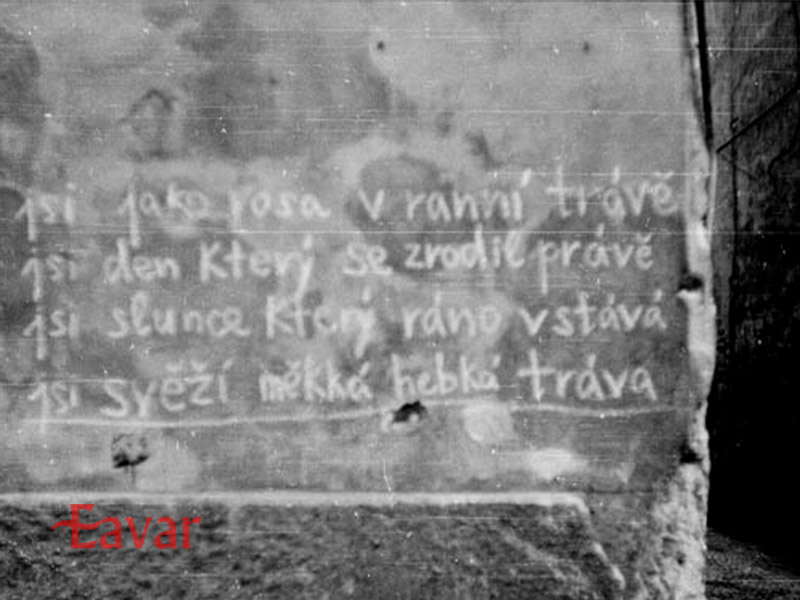 jsi jako rosa v ranní trávě
jsi den který se zrodil právě
jsi slunce který ráno vstává
jsi svěží měkká hebká tráva
Eavar